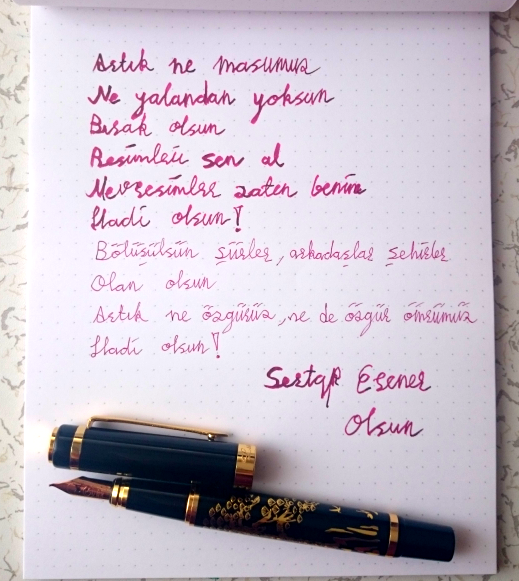 Artık ne masumuz
Ne yalandan yoksun
Bırak olsun
Resimleri sen al
Mevsimler zaten benim
Hadi olsun!
Bölüşülsün şiirler, arkadaşlar şehirler
Olan olsun
Artık ne özgürüz, ne de özgür ömrümüz
Hadi olsun!
Sertap Erener
Olsun